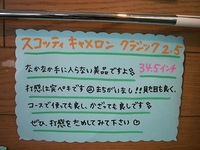 スコッティ キャメロン クラシック 2.5
なかなか手に入らない美品ですよ
34.5インチ
打感は食べキです まちがいなし!! 見た目も良く、
コースで使っても良し、かざっても良しです。
ぜひ、打感をためしてみて下さい